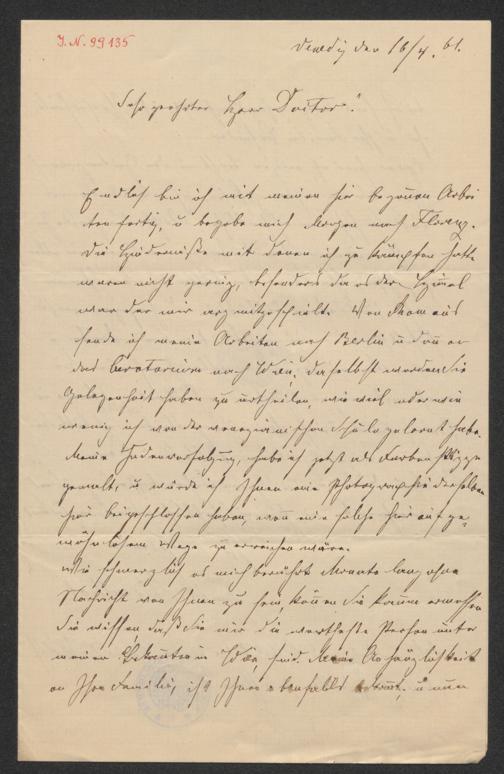 J. N. 99135
Venedig den 16/4. 61.
Sehr geehrter Herr Doctor!
Endlich bin ich mit meinen hier begonnen Arbei
ten fertig, u begebe mich Morgen nach Florenz.
Die Hindernisse mit denen ich zu kämpfen hatte
waren nicht gering, besonders da es der Himmel
war der mir arg mitgespielt. Von Rom aus
sende ich meine Arbeiten nach Berlin u dann an
das nach Wien, daselbst werden Sie
Gelegenheit haben zu urtheilen, wie viel oder wie
wenig ich von der venezianischen Schule gelernt habe.
Meine Judenverfolgung, habe ich jetzt als Farben Skizze
gemalt, u würde ich Ihnen eine Photographie derselben
hier beigeschlossen haben, wenn eine solche hier auf ge,
wöhnlichem Wege zu erreichen wäre.
Wie schmerzlich es mich berührt Monate lang ohne
Nachricht von Ihnen zu sein können Sie kaum ermessen
Sie wissen, daß Sie mir die wertheste Person unter
meinen Bekannten in Wien sind. Meine Anhänglichkeit
an Ihre Familie, ist Ihnen ebenfalls bekannt, u nun